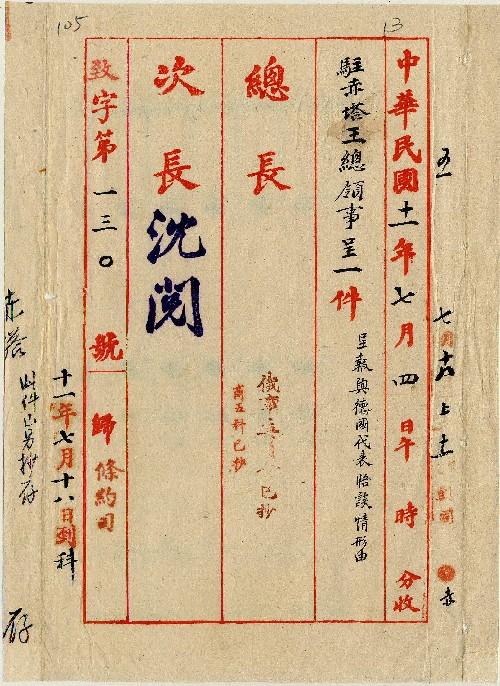 105
13
中華民國十一年七月四日午 時 分收
駐赤塔王總領事呈一件
呈報與德國代表晤談情形由
總長
商五科已抄
次長
沈閱
致字第一三〇號
歸條約司
十一年七月十八日到科
赤塔
此件已另抄存
存